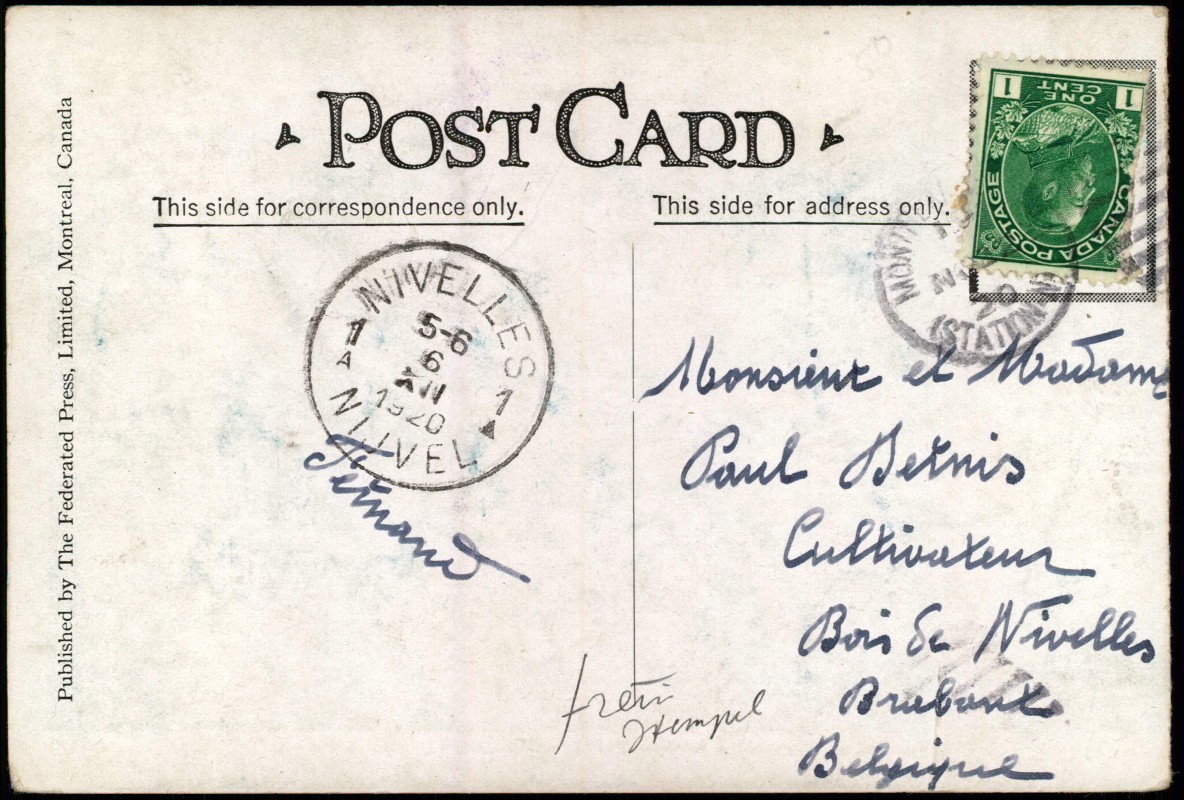 POST CARD
This side for correspondence only.
This side for address only.
Published by The Federated Press, Limited, Montreal, Canada
1 ONE CENT 1
CANADA POSTAGE
STATION
NIVELLES
5-6
6
XII
1920
1A 1A
NIJVEL
Fernand
Monsieur et Madame
Paul Bernis
Cultivateur
Bois de Nivelles
Brabant
Belgique
Stempel